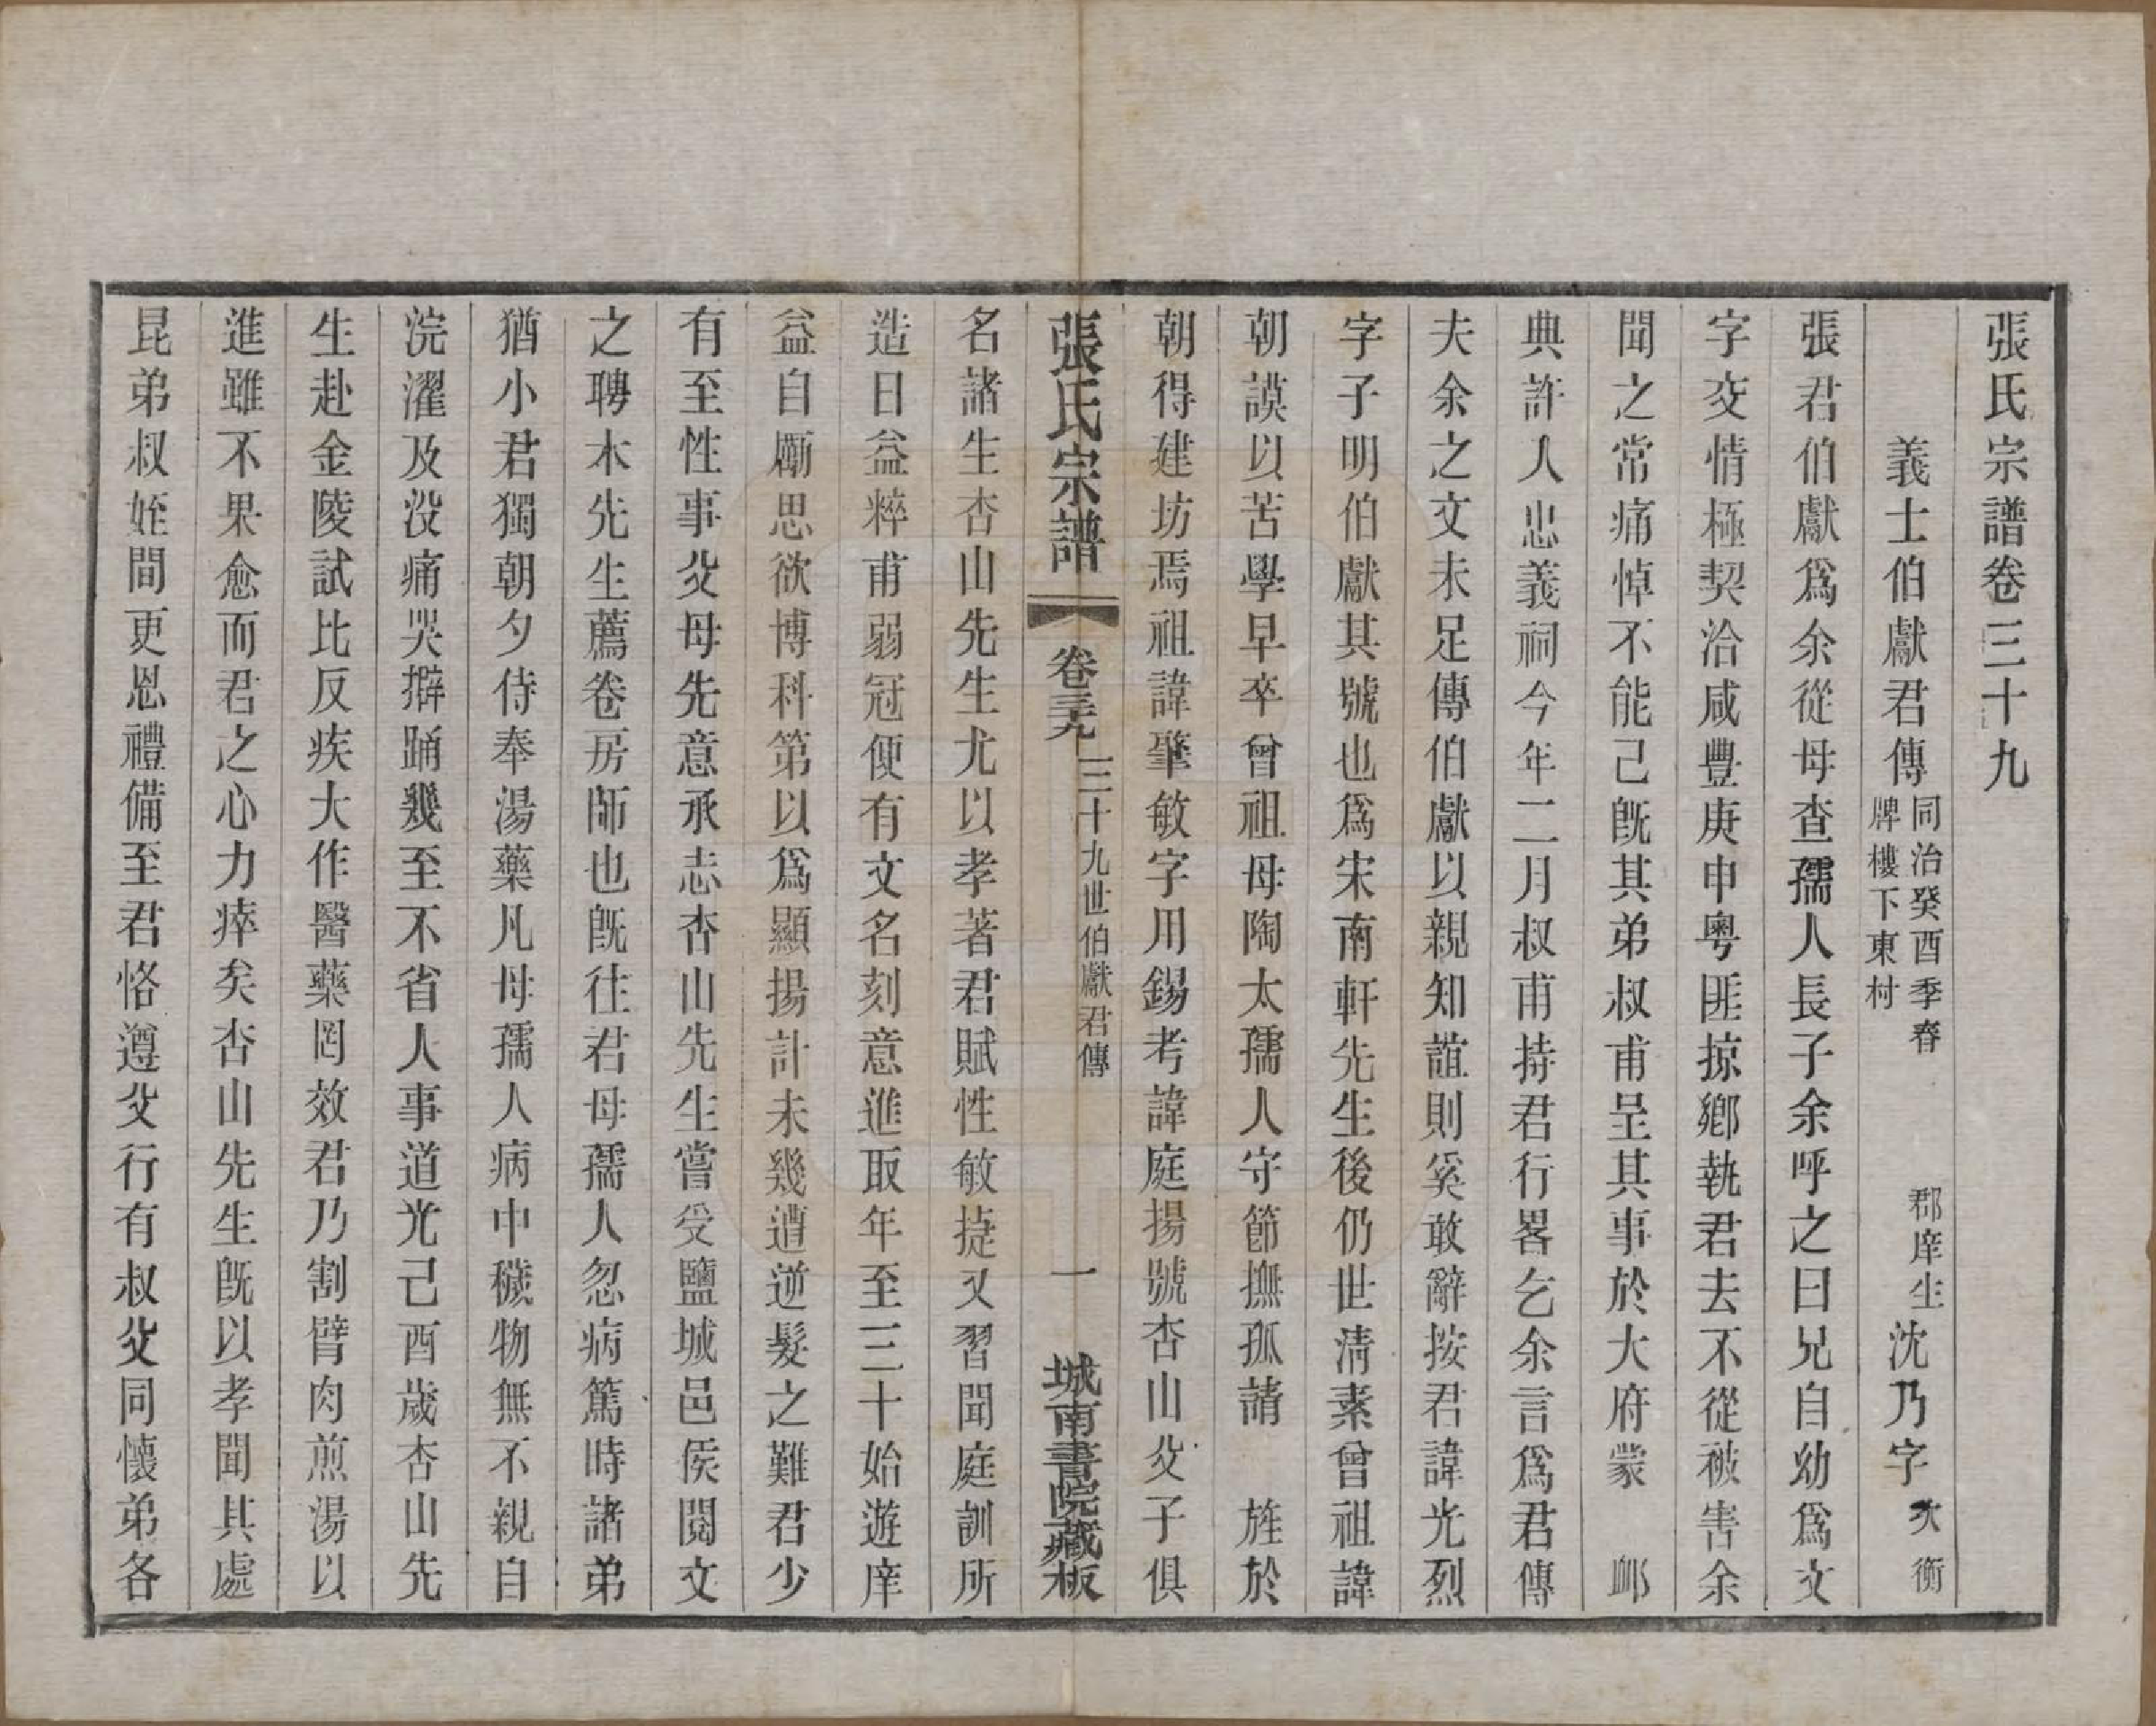 張氏宗譜卷三十九
義士伯獻君傳
同治癸酉季春
牌樓下東村
郡庠生
沈乃字
次衡
張君伯獻爲余從母查孺人長子余呼之曰兄自幼爲文
字交情極契洽咸豐庚申粵匪掠鄉執君去不從被害余
聞之常痛悼不能己旣其弟叔甫呈其事於大府蒙 䘏
典許人忠義祠今年二月叔甫持君行畧乞余言爲君傳
夫余之文未足傳伯獻以親知誼則奚敢辭按君諱光烈
字子明伯獻其號也爲宋南軒先生後仍世清素曾祖諱
朝謨以苦學早卒曾祖母陶太孺人守節撫孤請 旌於
朝得建坊焉祖諱肇敏字用錫考諱庭揚號杏山父子俱
張氏宗譜 卷三十九 三十九世伯獻君傳 一 城南書院藏板
名諸生杏山先生尤以孝著君賦性敏捷又習聞庭訓所
造日益粹甫弱冠便有文名刻意進取年至三十始遊庠
益自勵思欲博科第以爲顯揚計未幾遭逆髮之難君少
有至性事父母先意承志杏山先生嘗受鹽城邑侯閱文
之聘木先生薦卷房師也旣往君母孺人忽病篤時諸弟
猶小君獨朝夕侍奉湯藥凡母孺人病中穢物無不親自
浣濯及没痛哭擗踊幾至不省人事道光己酉歲杏山先
生赴金陵試比反疾大作醫藥罔效君乃割臂肉煎湯以
進雖不果愈而君之心力瘁矣杏山先生旣以孝聞其處
昆弟叔姪間更恩禮備至君恪遵父行有叔父同懷弟各